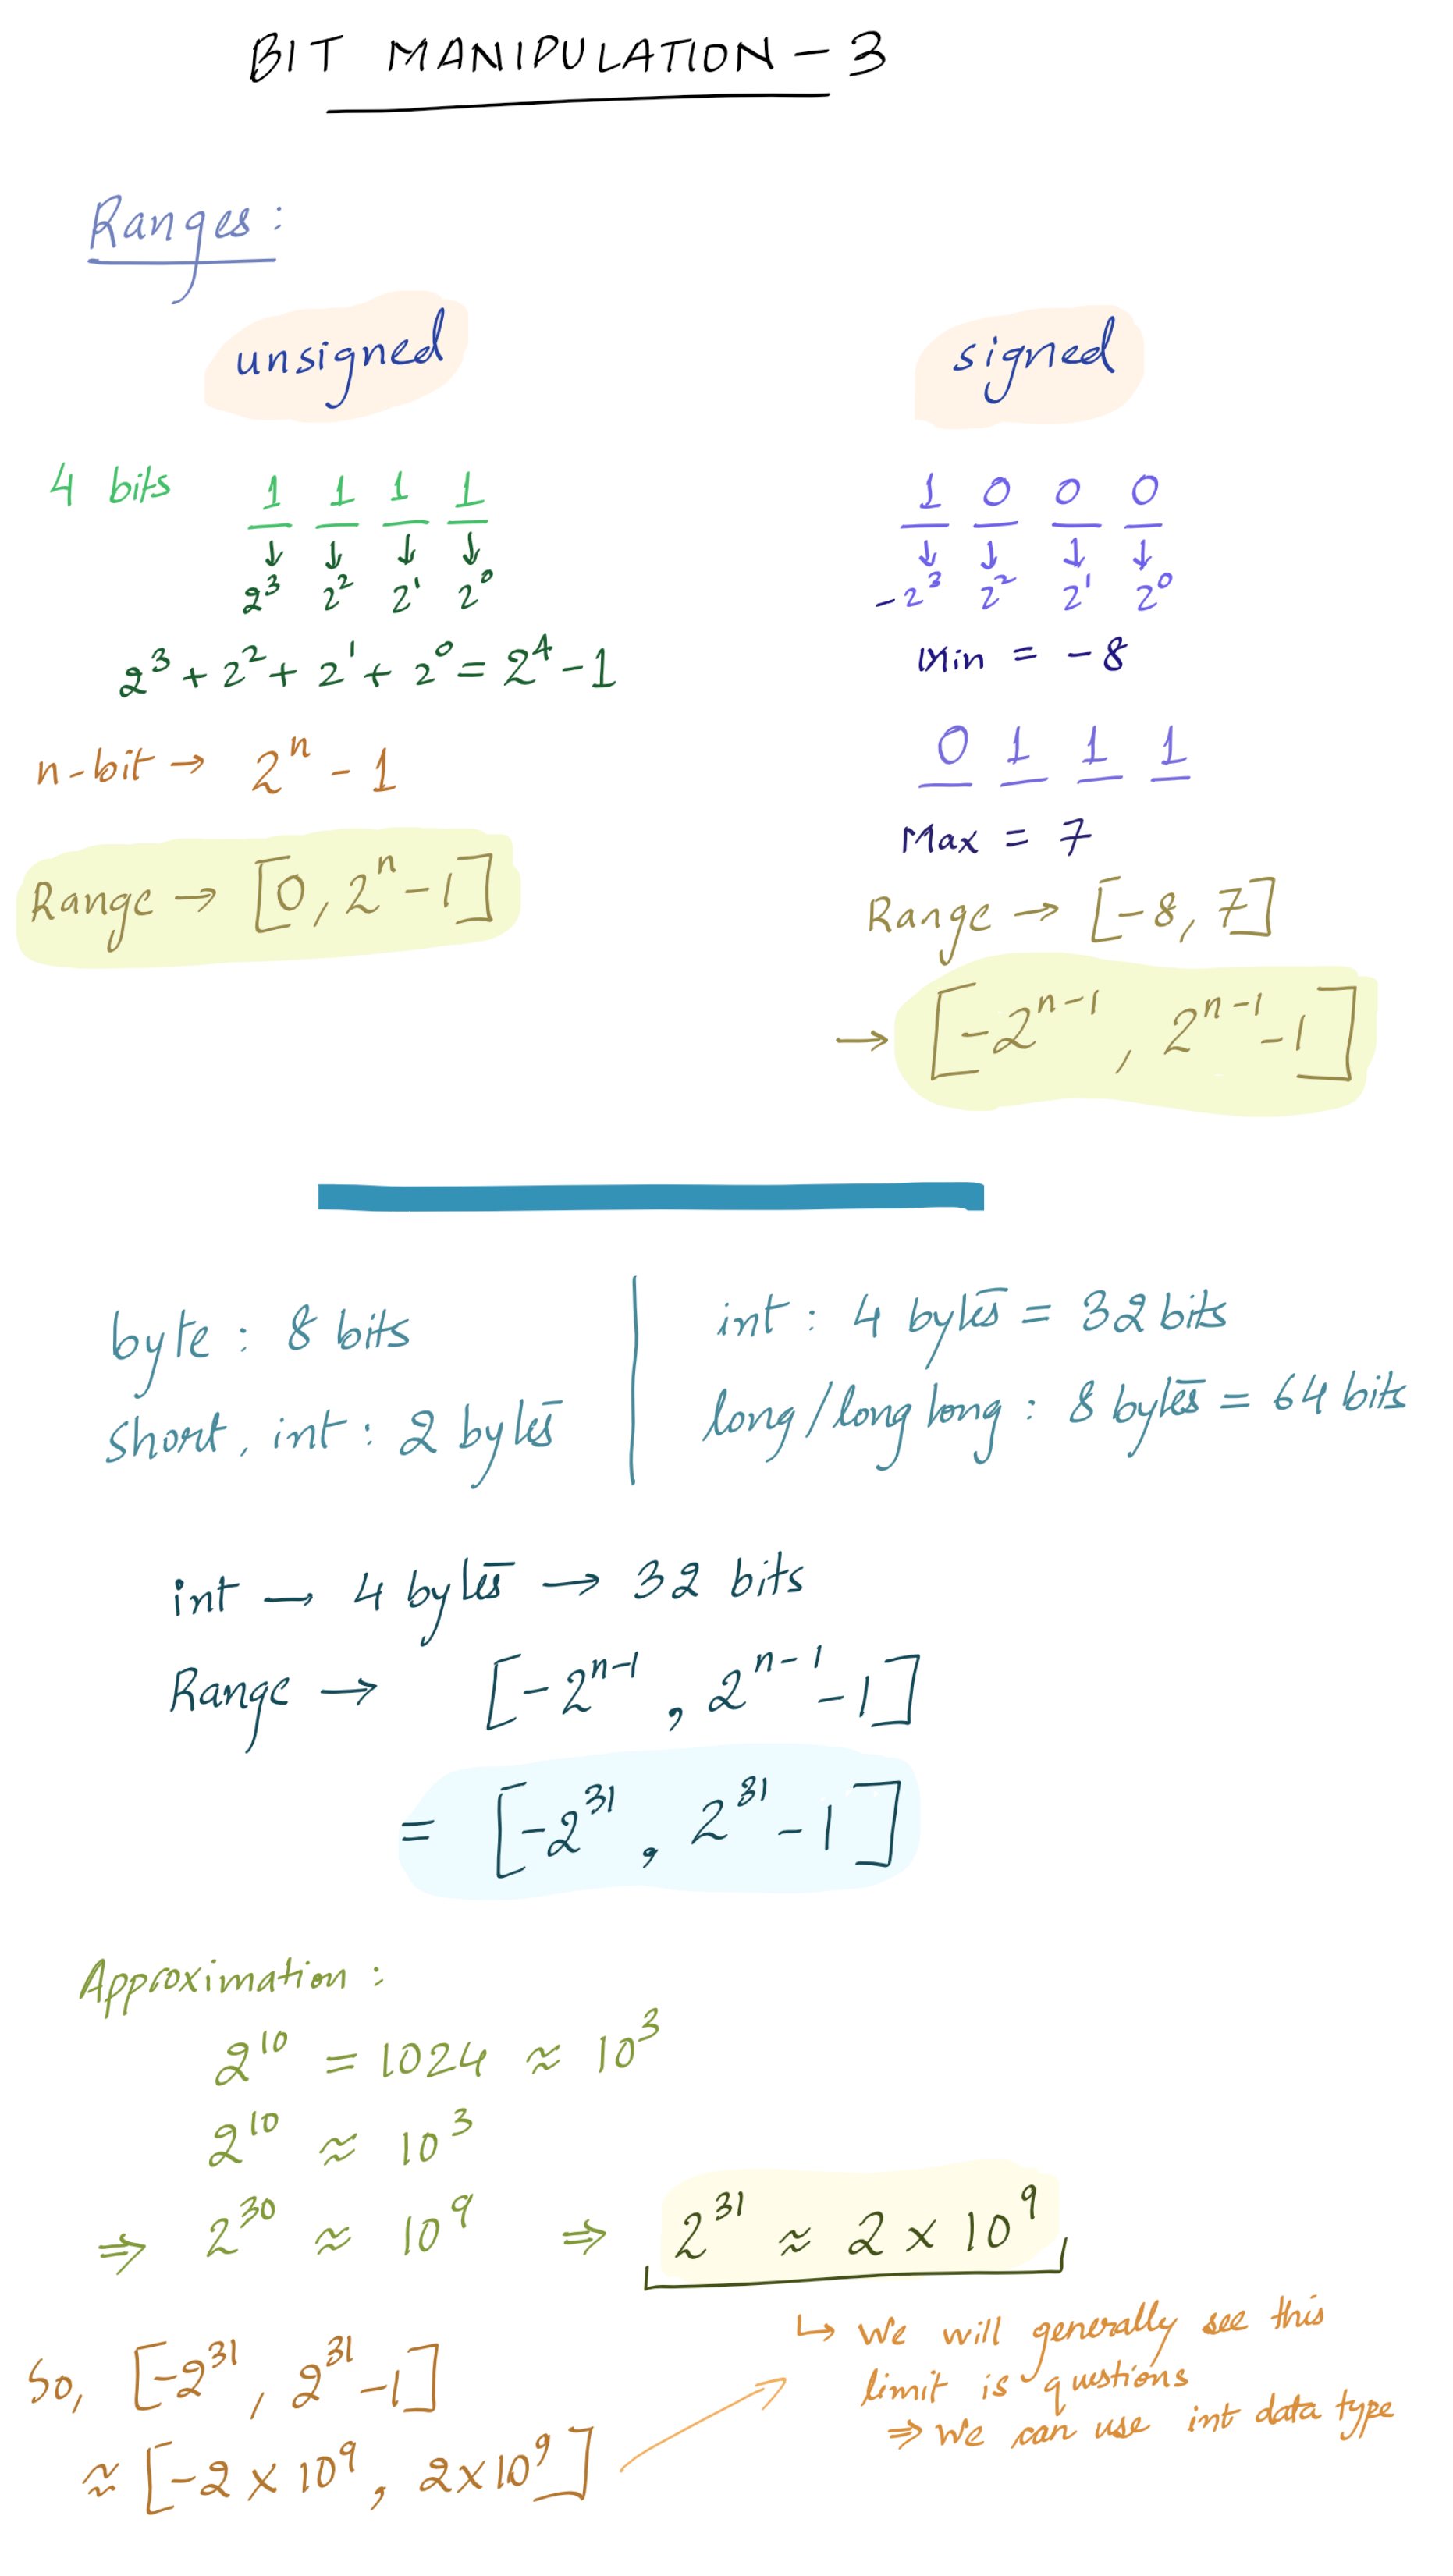 BIT MANIPULATION - 3
Ranges :
unsigned
4 bits 1 1 1 1
↓ ↓ ↓ ↓
2³ 2² 2¹ 2⁰
2³ + 2² + 2¹ + 2⁰ = 2⁴ - 1
n-bit → 2ⁿ - 1
Range → [0, 2ⁿ - 1]
signed
1 0 0 0
↓ ↓ ↓ ↓
-2³ 2² 2¹ 2⁰
Min = -8
0 1 1 1
Max = 7
Range → [-8, 7]
→ [-2ⁿ⁻¹, 2ⁿ⁻¹ - 1]
byte : 8 bits
short, int : 2 bytes
int : 4 bytes = 32 bits
long/long long : 8 bytes = 64 bits
int → 4 bytes → 32 bits
Range → [-2ⁿ⁻¹, 2ⁿ⁻¹ - 1]
= [-2³¹, 2³¹ - 1]
Approximation :
2¹⁰ = 1024 ≈ 10³
2¹⁰ ≈ 10³
⇒ 2³⁰ ≈ 10⁹ ⇒ 2³¹ ≈ 2 x 10⁹
↳ We will generally see this
limit is questions
⇒ We can use int data type
So, [-2³¹, 2³¹ - 1]
≈ [-2 x 10⁹, 2x10⁹]